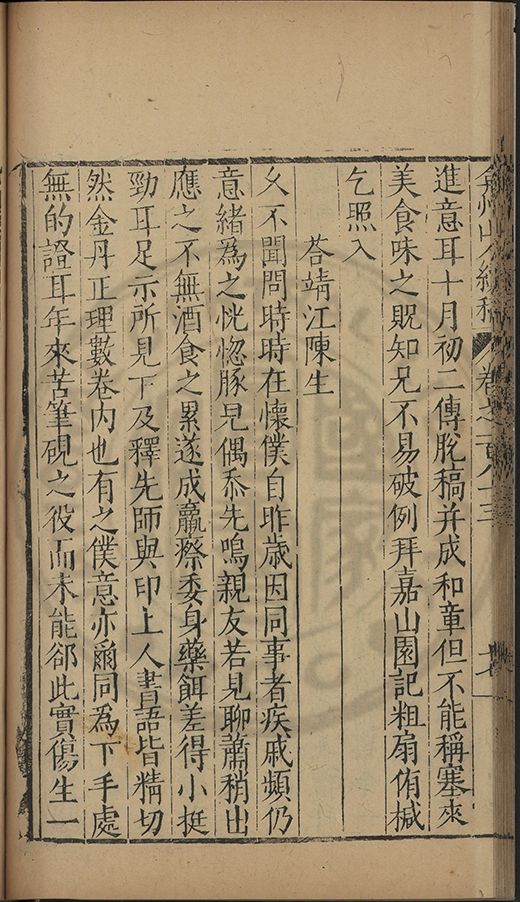 弇州山人續稿 卷之一百八十三
進意耳十月初二傳脫稿并成和章但不能稱塞來
美食味之貺知兄不易破例拜嘉山園記粗扇侑椷
乞照入
荅靖江陳生
久不聞問時時在懷僕自昨歲因同事者疾戚頻仍
意緒為之恍惚豚兒偶忝先鳴親友若見聊蕭稍出
應之不無酒食之累遂成羸瘵委身藥餌差得小挺
勁耳足示所見下及釋先師與印上人書語皆精切
然金丹正理數卷內也有之僕意亦爾同為下手處
無的證耳年來苦筆硯之役而未能郤此實傷生一